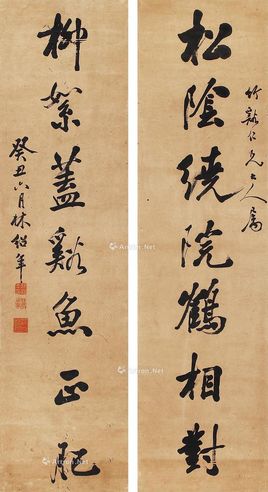 竹谿仁兄大人屬
松陰繞院鶴相對
柳絮蓋谿魚正肥
癸丑六月林紹年
Artron.Net
Artron.Net
Artron.Net
Artron.Net